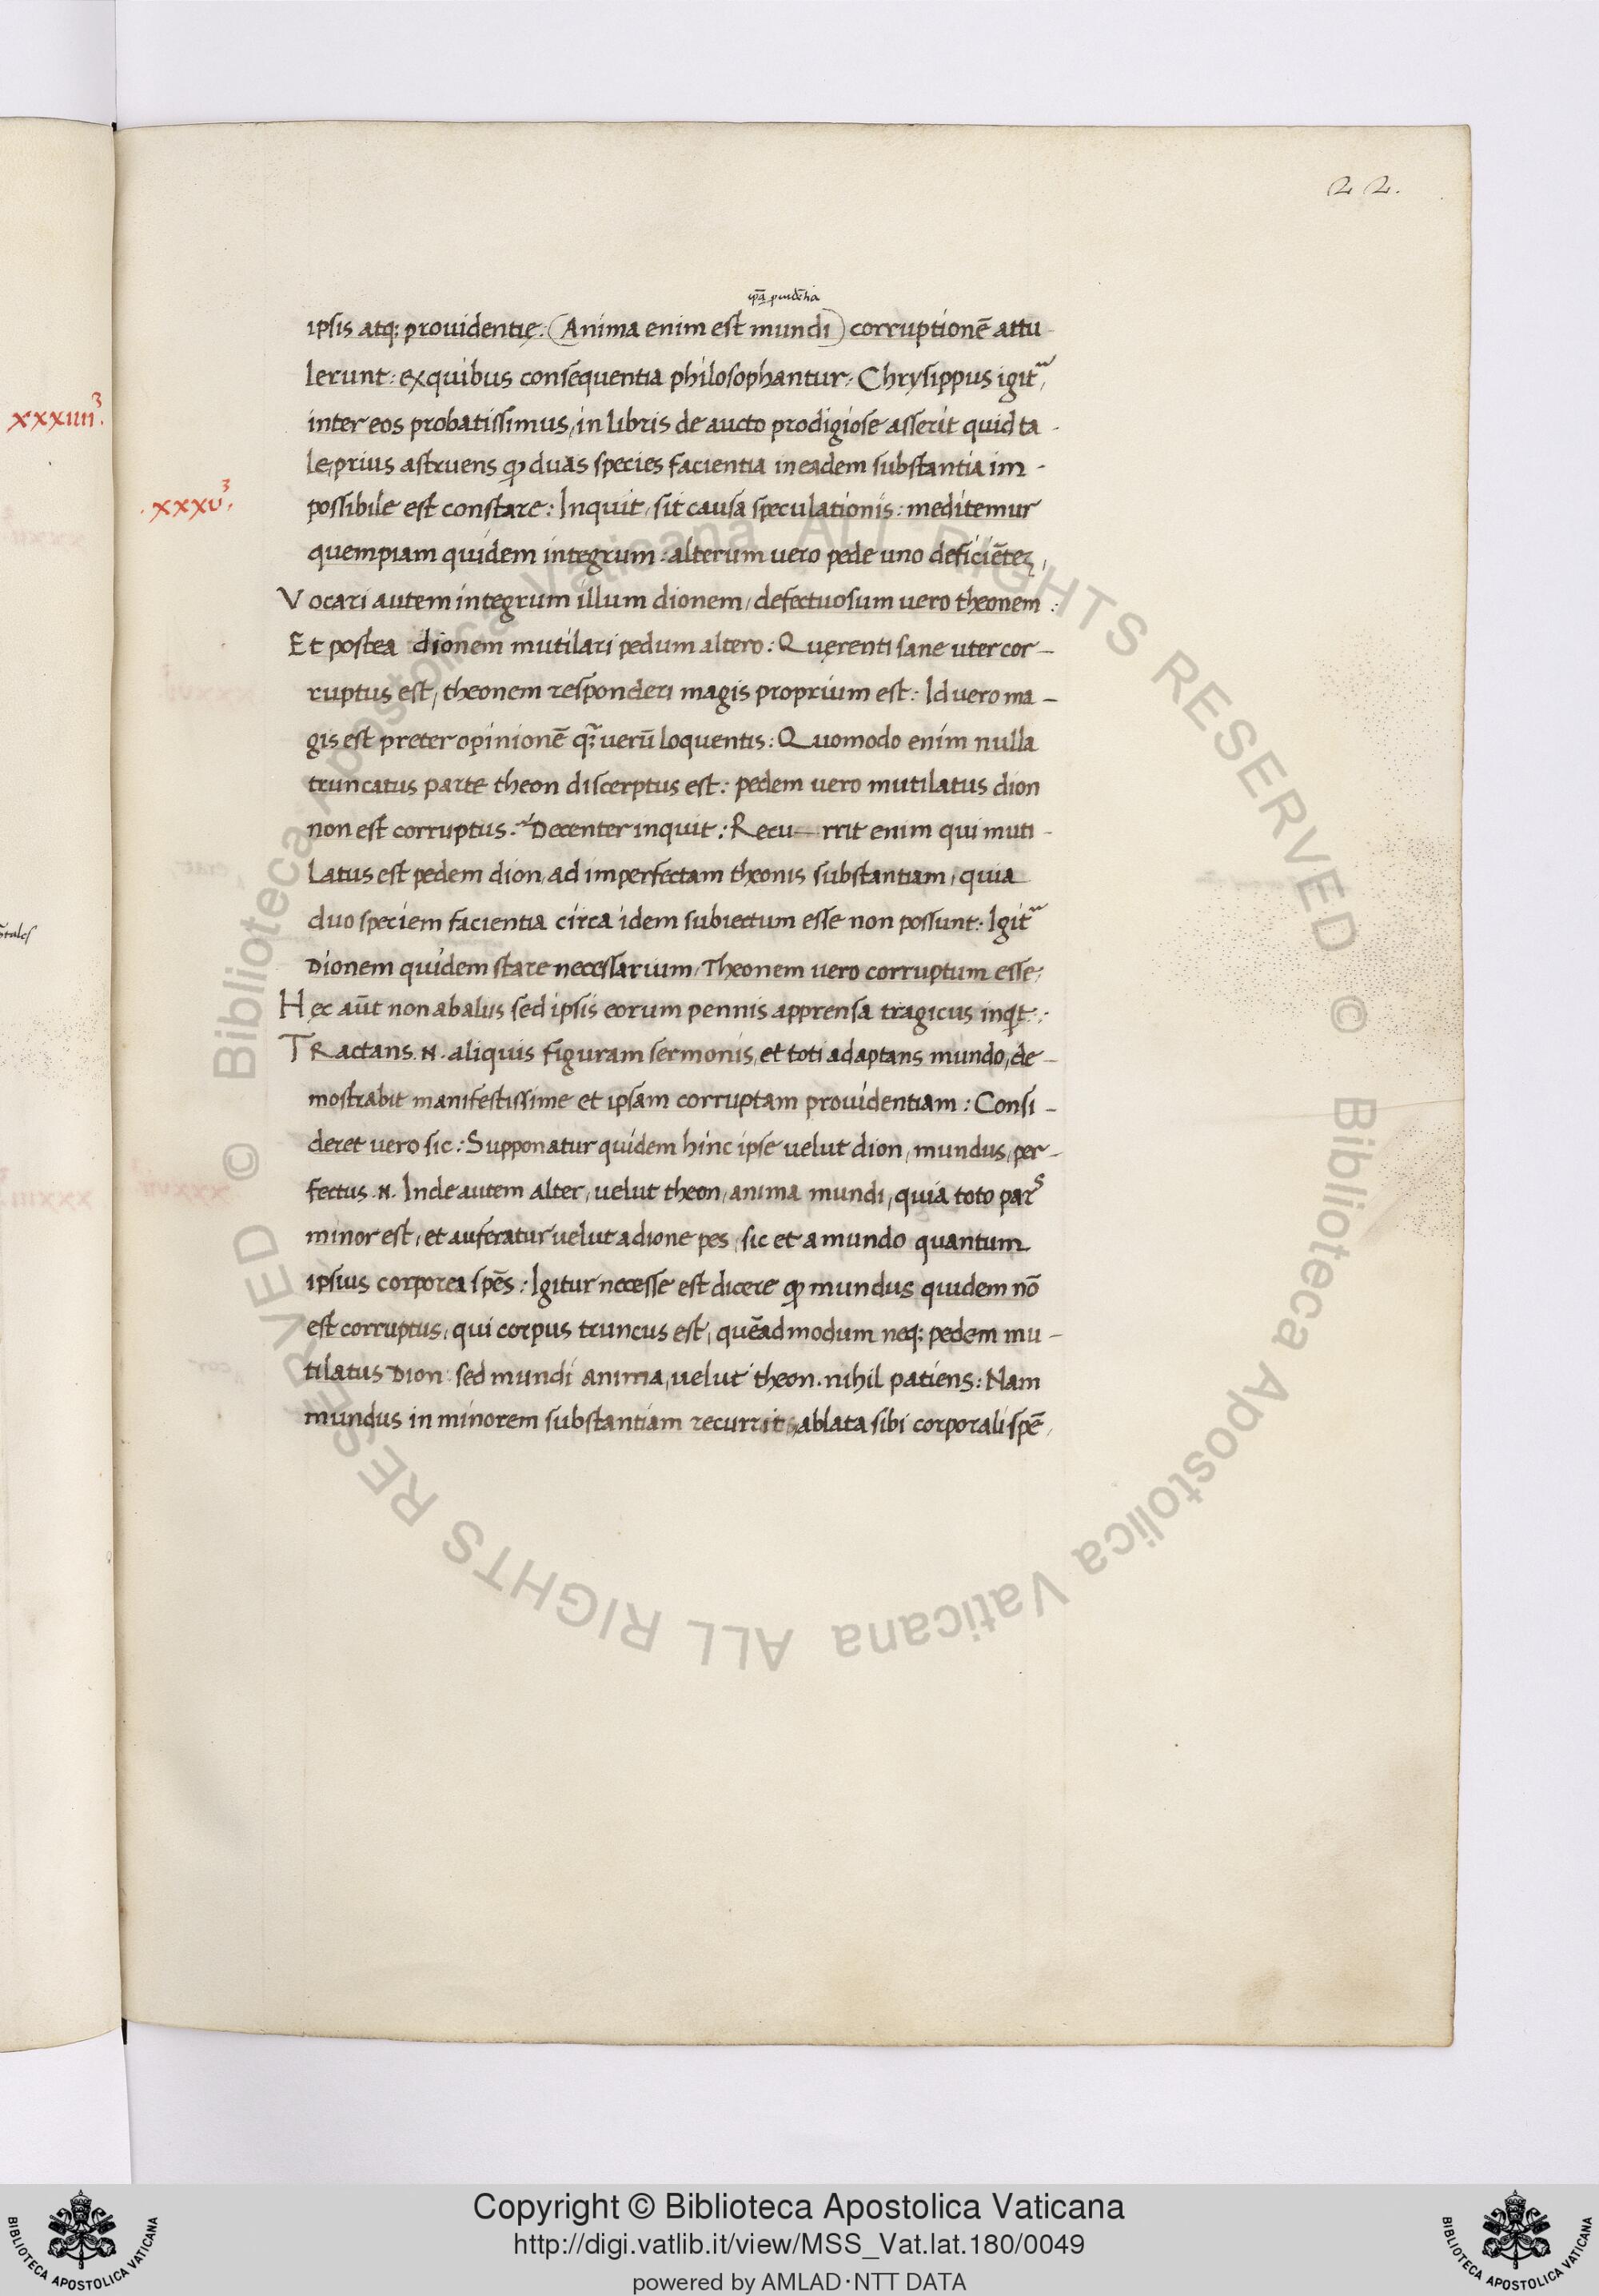 22.
xxxiiii³.
.xxxv³.
ip̄a pudētia
ipsis atq; prouidentię: (Anima enim est mundi) corruptionē attu
lerunt: ex quibus consequentia philosophantur: Chrysippus igit᷑,
inter eos probatissimus, in libris de aucto prodigiose asserit quid ta -
le, prius astruens ꝙ duas species facientia in eadem substantia im -
possibile est constare: Inquit, sit causa speculationis: meditemur
quempiam quidem integrum: alterum uero pede uno deficiēteꝫ,
Vocari autem integrum illum dionem, defectuosum uero theonem:
Et postea dionem mutilari pedum altero: Quęrenti sane uter cor -
ruptus est, theonem responderi magis proprium est: Id uero ma -
gis est preter opinionē uerū loquentis: Quomodo enim nulla
truncatus parte theon discerptus est: pedem uero mutilatus dion
non est corruptus. Decenter inquit: Recu—rrit enim qui muti -
Latus est pedem dion, ad imperfectam theonis substantiam, quia
duo speciem facientia circa idem subiectum esse non possunt: Igit᷑
Dionem quidem stare necessarium, Theonem uero corruptum esse;
Hęc aūt non ab alus sed ipsis eorum pennis apprensa tragicus inqt:
TRactans .N. aliquis figuram sermonis, et toti adaptans mundo, de -
mostrabit manifestissime et ipsam corruptam prouidentiam: Consi -
deret uero sic: Supponatur quidem hinc ipse uelut dion, mundus, per -
fectus .N. Inde autem alter, uelut theon, anima mundi, quia toto parˢ
minor est, et auferatur uelut a dione pes, sic et a mundo quantum
ipsius corporea spēs: Igitur necesse est dicere ꝙ mundus quidem nō
est corruptus, qui corpus truncus est, quēadmodum neq; pedem mu -
tilatus Dion: sed mundi anima, uelut theon. nihil patiens: Nam
mundus in minorem substantiam recurrit, ablata sibi corporali spē,
Copyright © Biblioteca Apostolica Vaticana
http://digi.vatlib.it/view/MSS_Vat.lat.180/0049
powered by AMLAD·NTT DATA
BIBLIOTECA APOSTOLICA VATICANA
BIBLIOTECA APOSTOLICA VATICANA
© Biblioteca Apostolica Vaticana ALL RIGHTS RESERVED
© Biblioteca Apostolica Vaticana ALL RIGHTS RESERVED